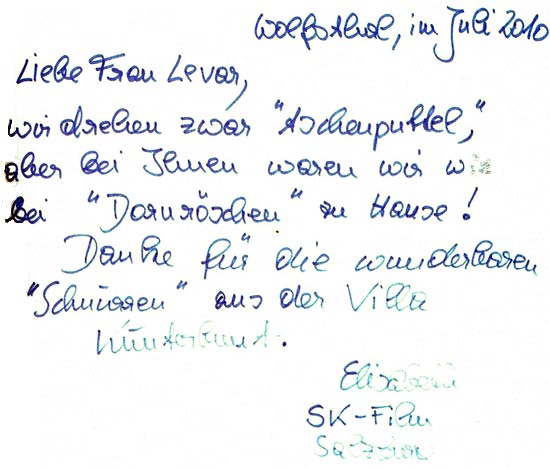 Wolfsthal, im Juli 2010
Liebe Frau Levar,
wir drehen zwar "Aschenputtel,"
aber bei Ihnen waren wir wie
bei "Dornröschen" zu Hause!
Danke für die wunderbaren
"Schmarren" aus der Villa
Kunterbunt.
Elisabeth
SK-Film
Salzburg